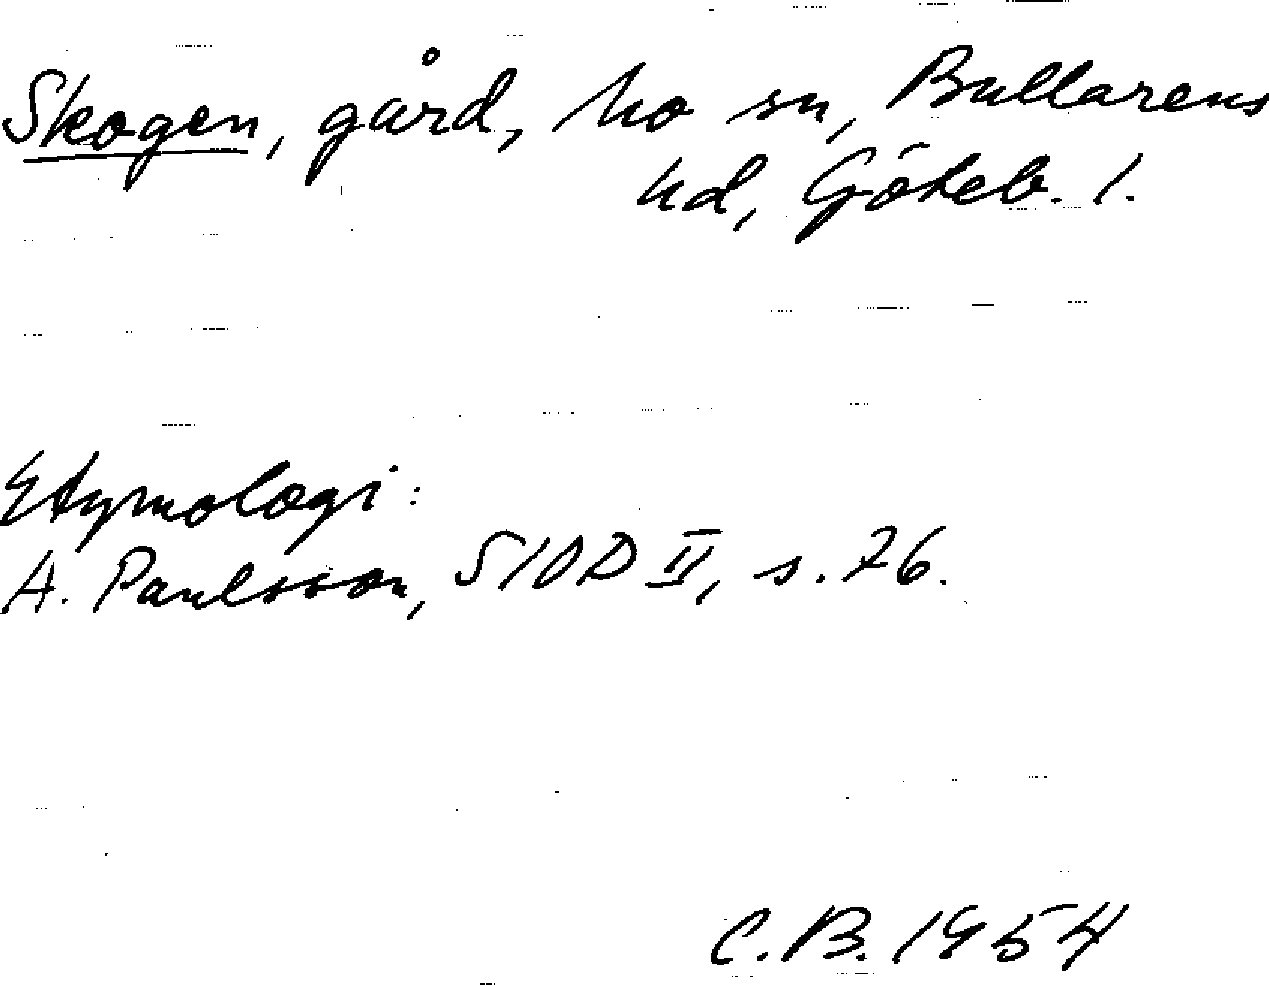 Skogen, gård, Mo sn, Bullarens
hd, Göteb. l.
Etymologi:
A. Paulsson, SIOD II, s. 76.
C.B. 1954